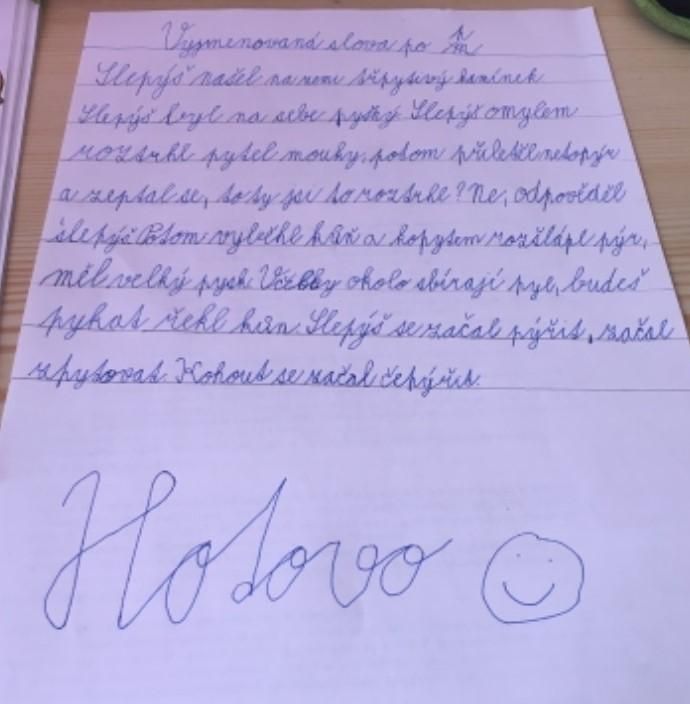 Vyjmenovaná slova po p
m
Slepýš našel na zemi třpytivý kamínek
Slepýš byl na sebe pyšný Slepýš omylem
roztrhl pytel mouky, potom přiletěl netopýr
a zeptal se, to ty jsi to roztrhl? Ne, odpověděl
slepýš Potom vyběhl kůň a kopytem rozšlápl pýr,
měl velký pysk Včelky okolo sbírají pyl, budeš
pykat řekl kůn. Slepýš se začal pýřit, začal
zpytovat. Kohout se začal čepýřit.
Hotovo